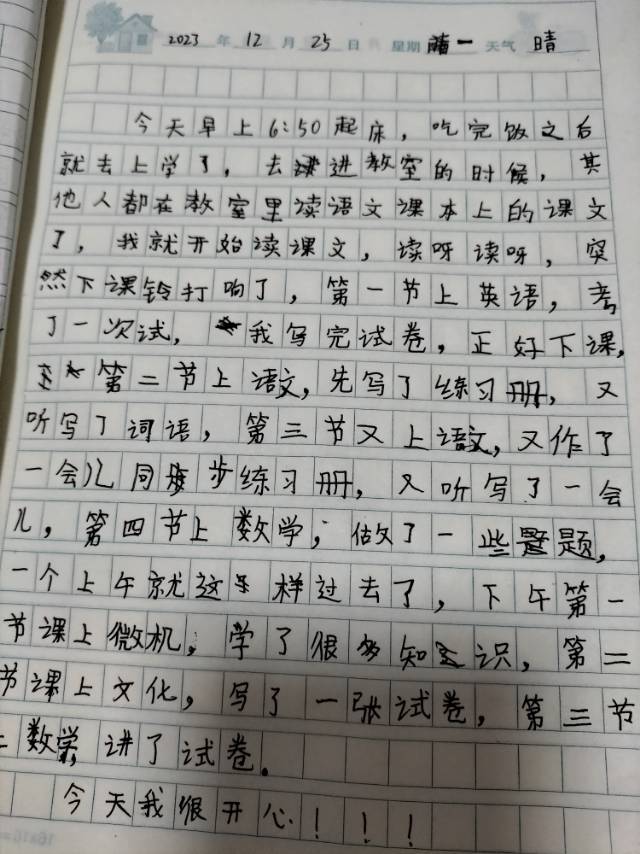 2023年12月25日 星期一 天气 晴
今天早上6:50起床，吃完饭之后
就去上学了，去进教室的时候，其
他人都在教室里读语文课本上的课文
了，我就开始读课文，读呀读呀，突
然下课铃打响了，第一节上英语，考
了一次试，我写完试卷，正好下课，
第二节上语文，先写了练习册，又
听写了词语，第三节又上语文，又作了
一会儿同步练习册，又听写了一会
儿，第四节上数学，做了一些题，
一个上午就这样过去了，下午第一
节课上微机，学了很多知识，第二
节课上文化，写了一张试卷，第三节
上数学，讲了试卷。
今天我很开心！！！